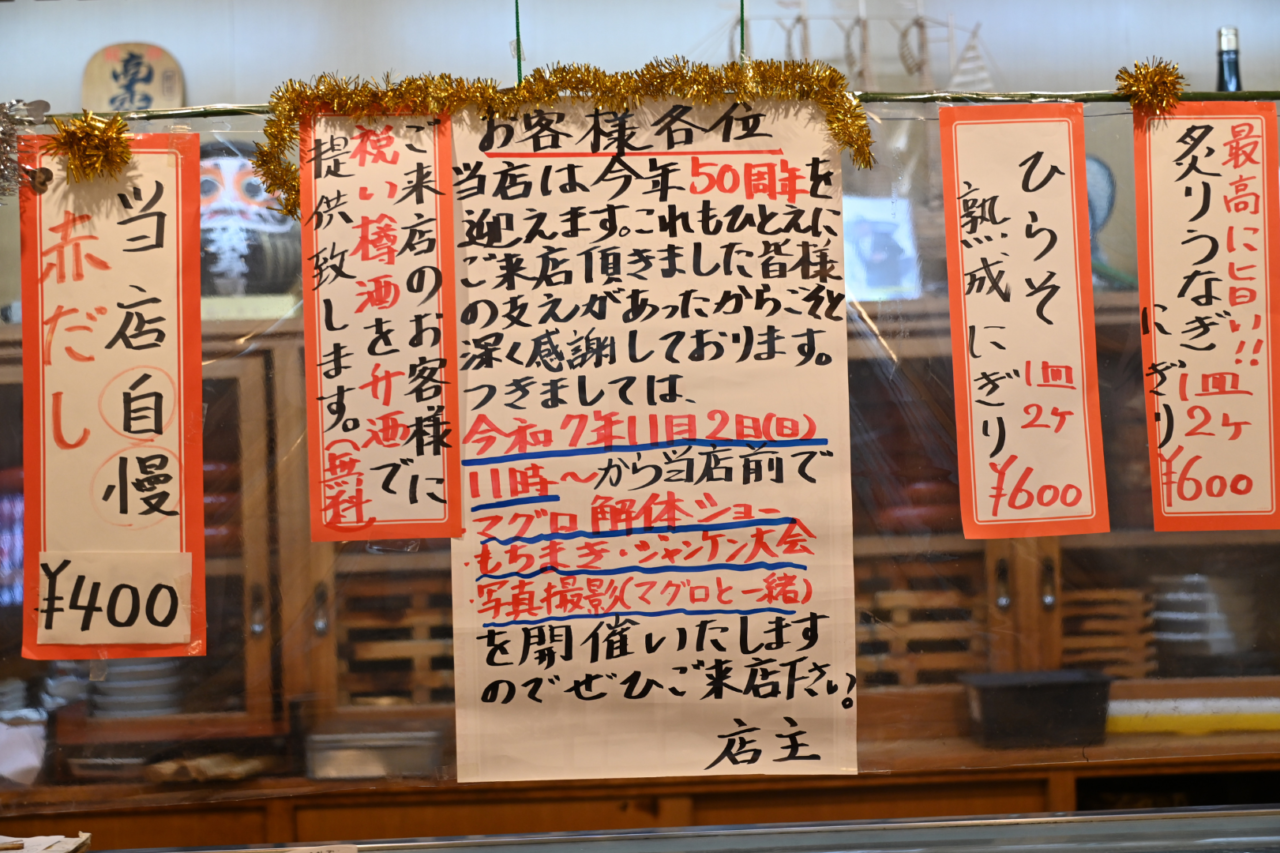 当店自慢
赤だし
¥400
ご来店のお客様に
祝い樽酒を升酒で
提供致します。(無料)
お客様各位
当店は今年50周年を
迎えます。これもひとえに
ご来店頂きました皆様
の支えがあったからこそと
深く感謝しております。
つきましては、
令和7年11月2日(日)
11時〜から当店前で
マグロ解体ショー
・もちまき・ジャンケン大会
・写真撮影(マグロと一緒)
を開催いたします
のでぜひご来店下さい。
店主
ひらそ
熟成にぎり
1皿
2ヶ
¥600
最高に旨い!!
炙りうなぎ
にぎり
1皿
2ヶ
¥600